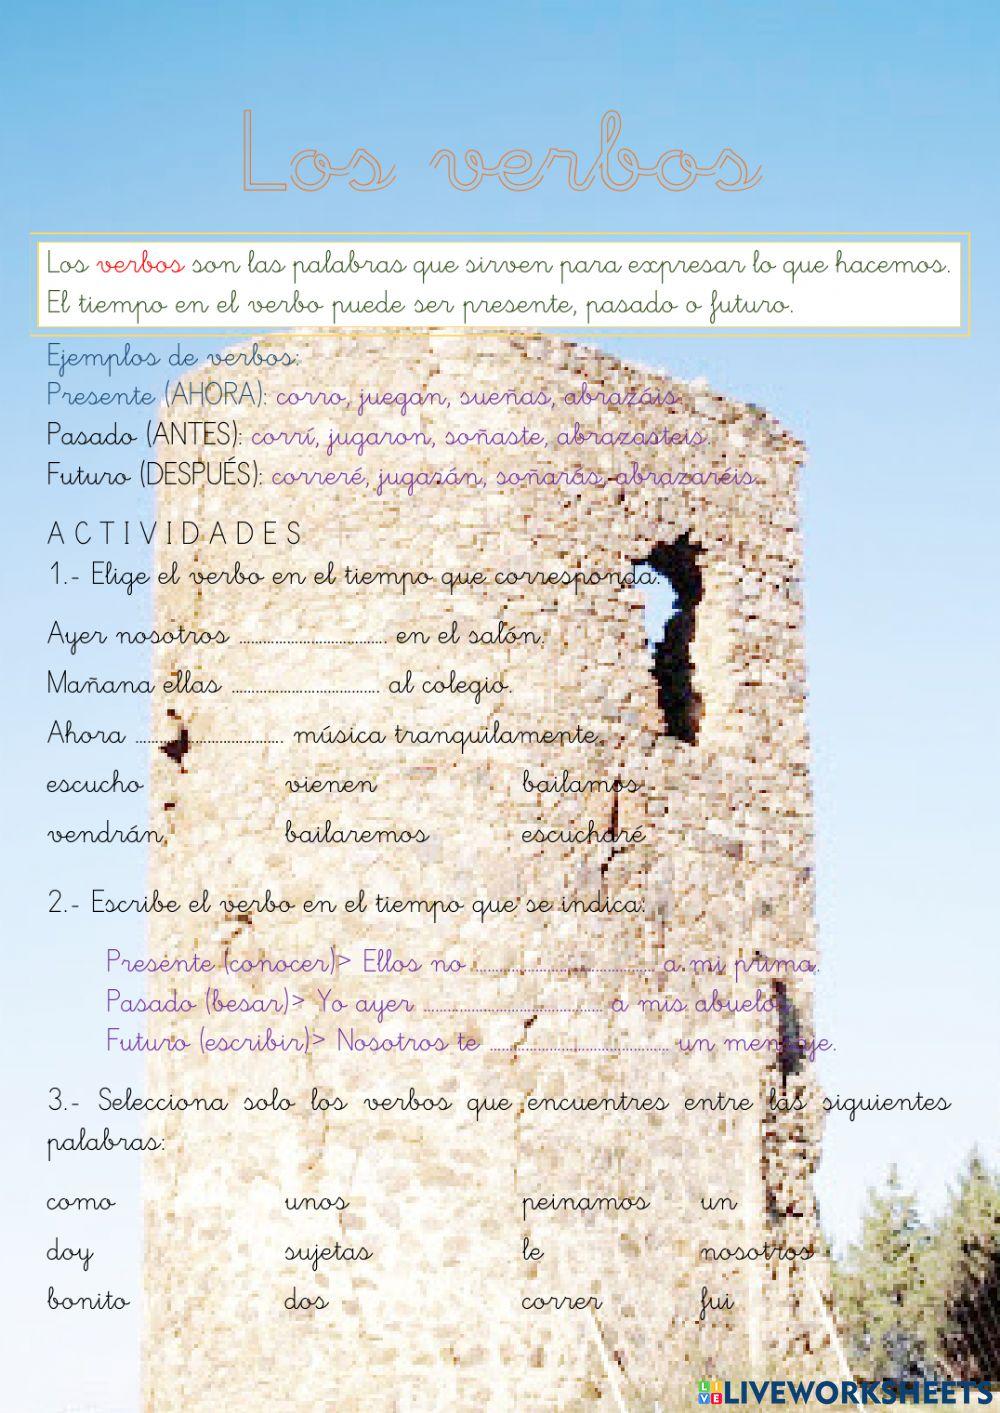 Los verbos
Los verbos son las palabras que sirven para expresar lo que hacemos.
El tiempo en el verbo puede ser presente, pasado o futuro.
Ejemplos de verbos:
Presente (AHORA): corro, juegan, sueñas, abrazáis.
Pasado (ANTES): corrí, jugaron, soñaste, abrazasteis.
Futuro (DESPUÉS): correré, jugarán, soñarás, abrazaréis.
ACTIVIDADES
1.- Elige el verbo en el tiempo que corresponda:
Ayer nosotros ...................................... en el salón.
Mañana ellas ...................................... al colegio.
Ahora ...................................... música tranquilamente.
escucho vienen bailamos
vendrán bailaremos escucharé
2.- Escribe el verbo en el tiempo que se indica:
Presente (conocer)> Ellos no .............................................. a mi prima.
Pasado (besar)> Yo ayer .............................................. a mis abuelos.
Futuro (escribir)> Nosotros te .............................................. un mensaje.
3.- Selecciona solo los verbos que encuentres entre las siguientes
palabras:
como unos peinamos un
doy sujetas le nosotros
bonito dos correr fui
LIVE LIVEWORKSHEETS